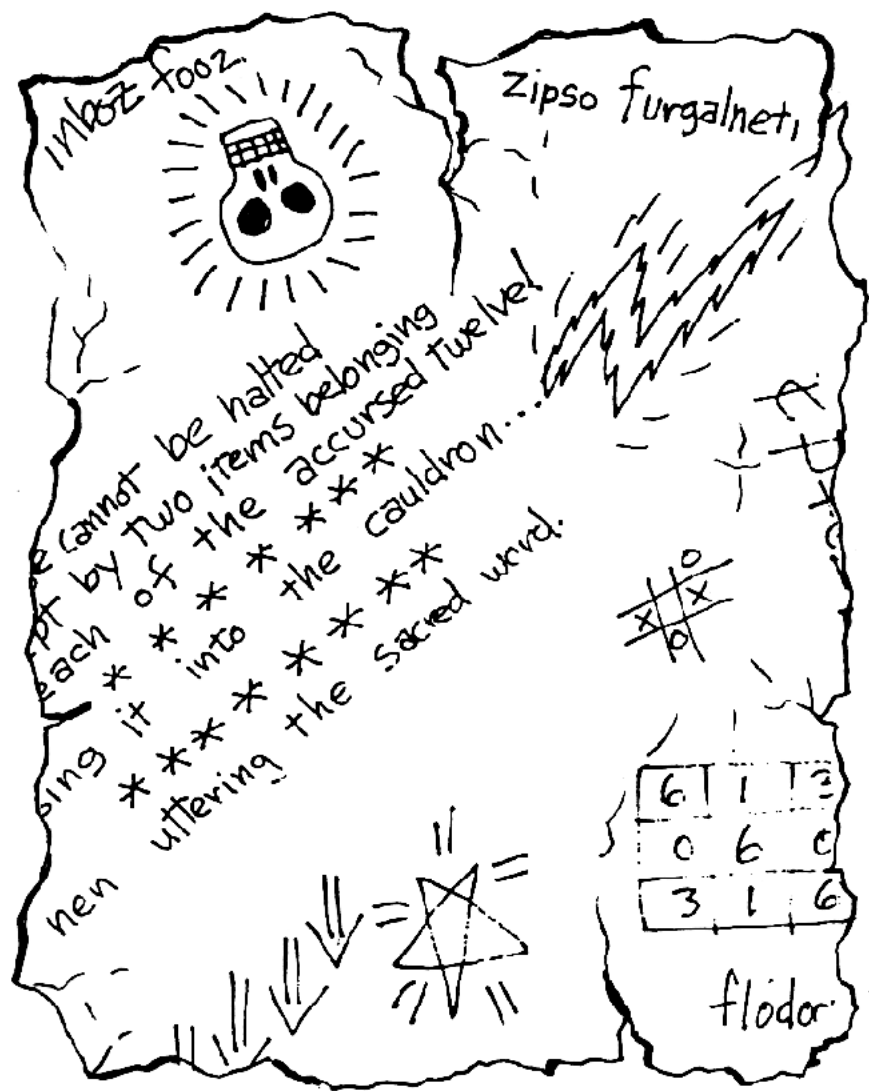 inboz fooz.
zipso furgalneti
e cannot be halted
pt by two items belonging
each of the accursed twelve!
* * * * * * *
sing it into the cauldron...
* * * * * * * * *
nen uttering the sacred word.
O
X X
O
6 1 3
0 6 0
3 1 6
flodor.